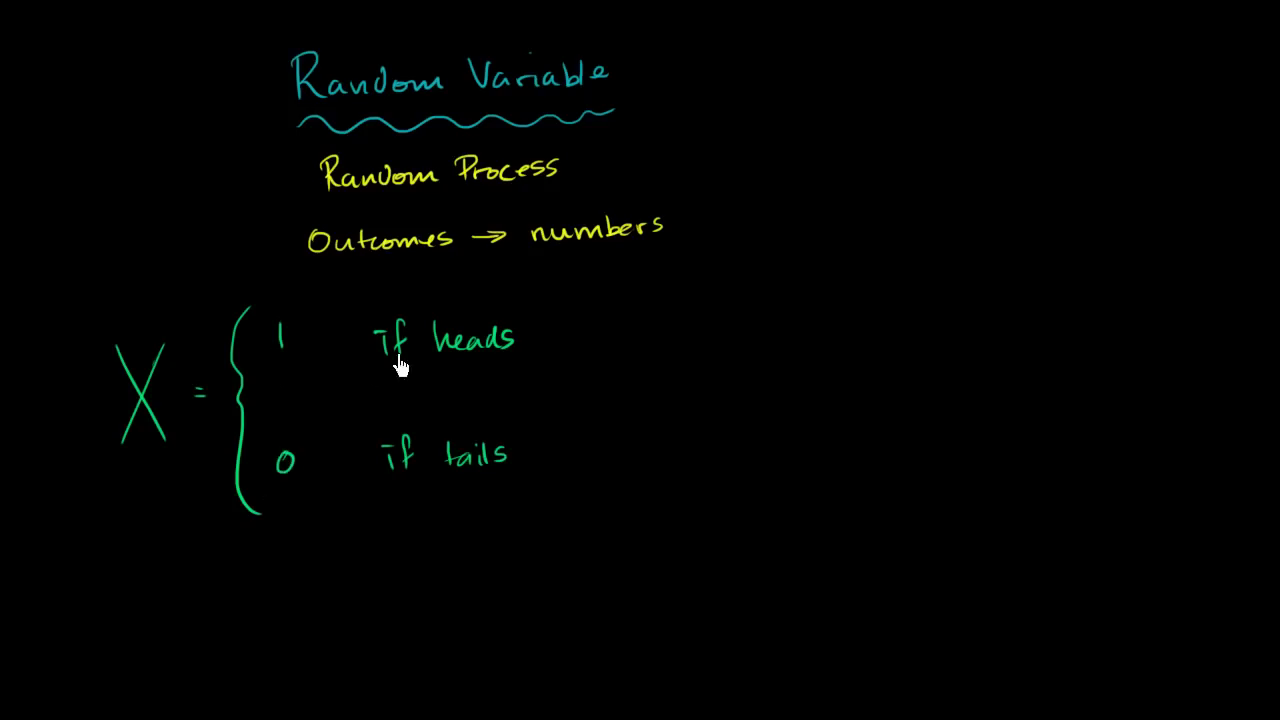 Random Variable
Random Process
Outcomes → numbers
X = { 1 if heads
0 if tails